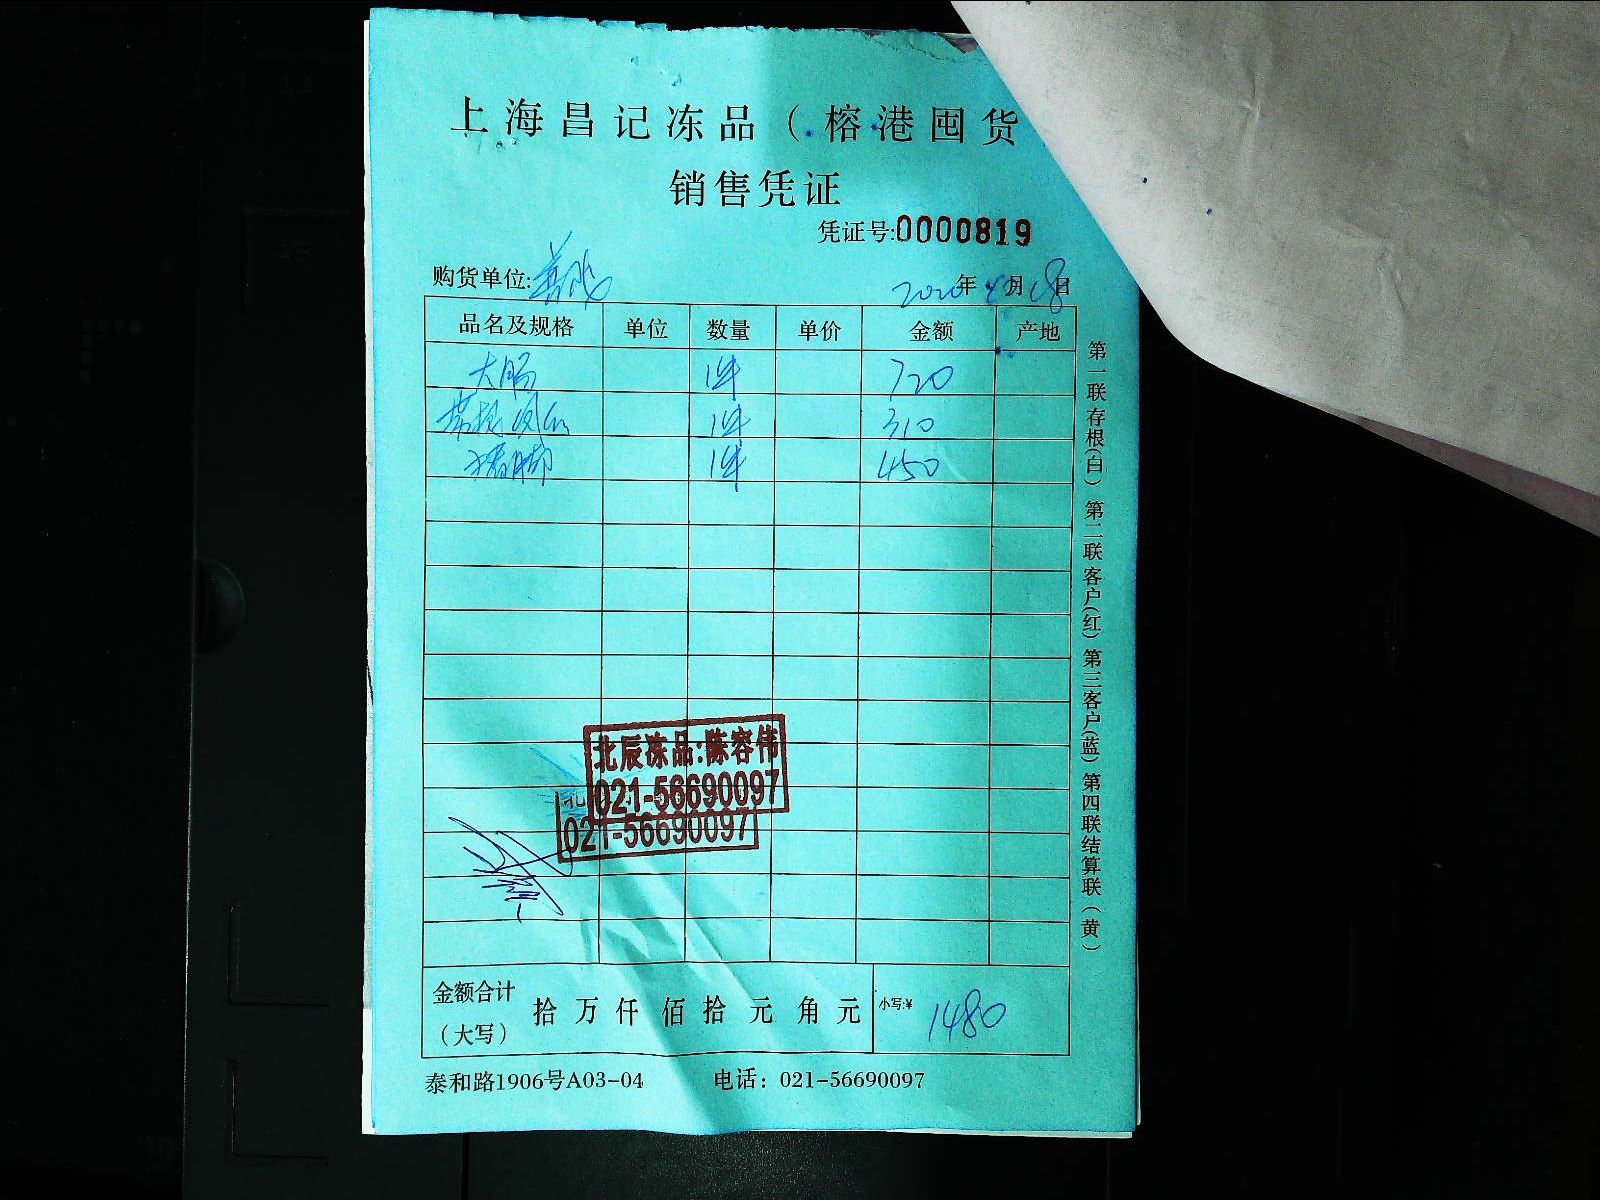 上海昌记冻品（榕港囤货
销售凭证
凭证号:0000819
购货单位:
2020年 月18日
品名及规格 单位 数量 单价 金额 产地
大肠 1件 720
1件 310
猪脚 1件 450
北辰冻品:陈容伟
021-56690097
北
021-56690097
金额合计（大写） 拾万仟佰拾元角元 小写:¥ 1480
泰和路1906号A03-04 电话：021-56690097
第一联存根(白) 第二联客户(红) 第三客户(蓝) 第四联结算联(黄)